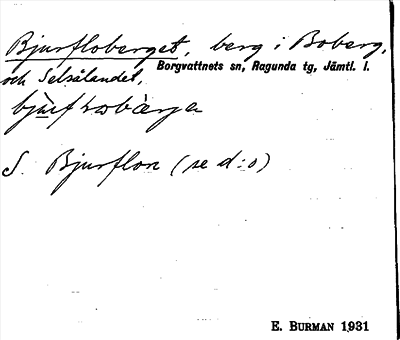 Bjurfloberget, berg i Boberg,
och Selsålandet, Borgvattnets sn, Ragunda tg, Jämtl. l.
S. Bjurflon (se d:o)
E. BURMAN 1931